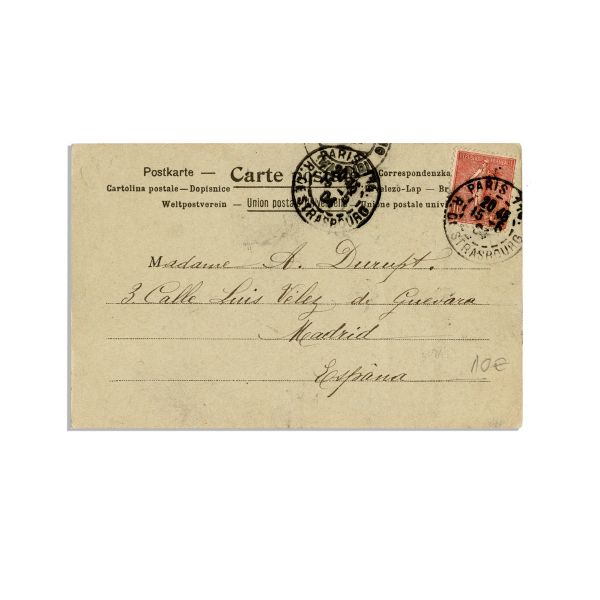 Postkarte — Carte postale Correspondenzka
Cartolina postale — Dopisnice elezö-Lap — Br
Weltpostverein — Union postale universelle Unione postale univ
PARIS
R. DE STRASBOURG
PARIS
20 45
15 - 6
04
R. DE STRASBOURG
Madame A. Durupt.
3 Calle Luis Vélez de Guevara
Madrid
España
10€